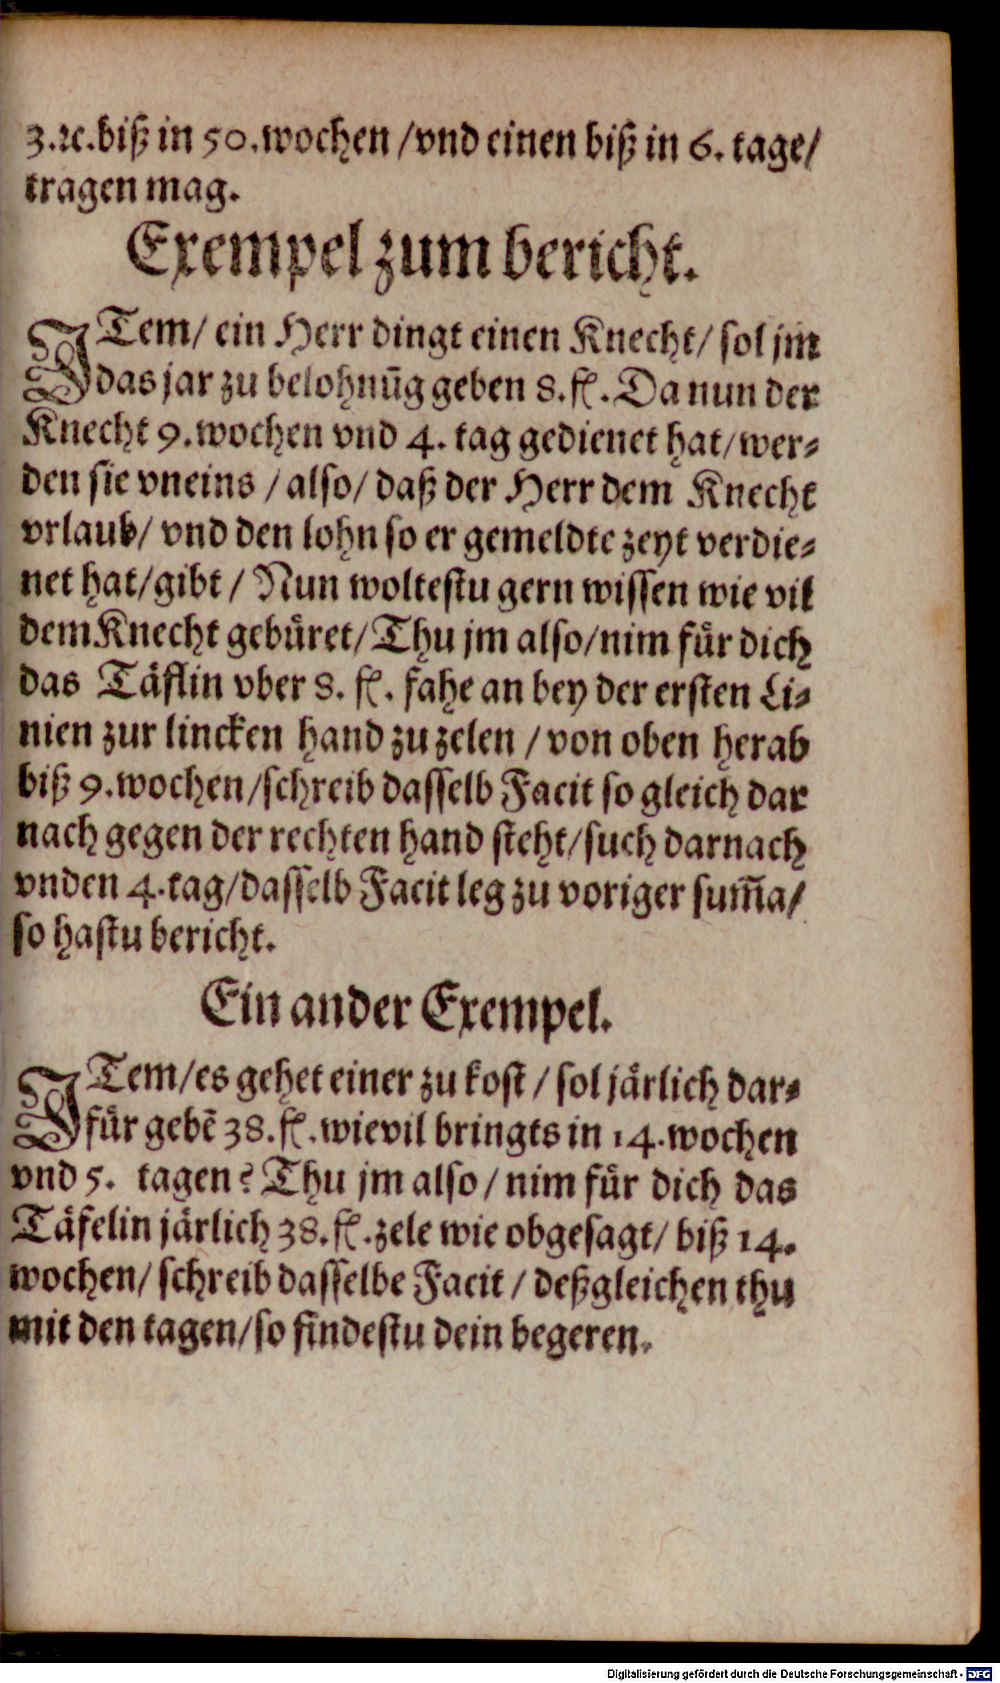 3.ꝛc.biß in 50.wochen /vnd einen biß in 6. tage/
tragen mag.
Exempel zum bericht.
ITem/ ein Herr dingt einen Knecht/ sol jm
das jar zu belohnũg geben 8.fl. Da nun der
Knecht 9.wochen vnd 4. tag gedienet hat/wer⸗
den sie vneins / also/ daß der Herr dem Knecht
vrlaub/ vnd den lohn so er gemeldte zeyt verdie⸗
net hat/gibt / Nun woltestu gern wissen wie vil
dem Knecht gebuͤret/Thu jm also/nim fuͤr dich
das Taͤflin vber 8. fl. fahe an bey der ersten Li⸗
nien zur lincken hand zu zelen / von oben herab
biß 9.wochen/schreib dasselb Facit so gleich dar
nach gegen der rechten hand steht/such darnach
vnden 4.tag/dasselb Facit leg zu voriger sum̃a/
so hastu bericht.
Ein ander Exempel.
ITem/es gehet einer zu kost / sol jaͤrlich dar⸗
fuͤr gebẽ 38.fl.wievil bringts in 14.wochen
vnd 5. tagen? Thu jm also/ nim fuͤr dich das
Taͤfelin jaͤrlich 38.fl.zele wie obgesagt/ biß 14.
wochen/ schreib dasselbe Facit / deßgleichen thu
mit den tagen/so findestu dein begeren.
Digitalisierung gefördert durch die Deutsche Forschungsgemeinschaft - DFG